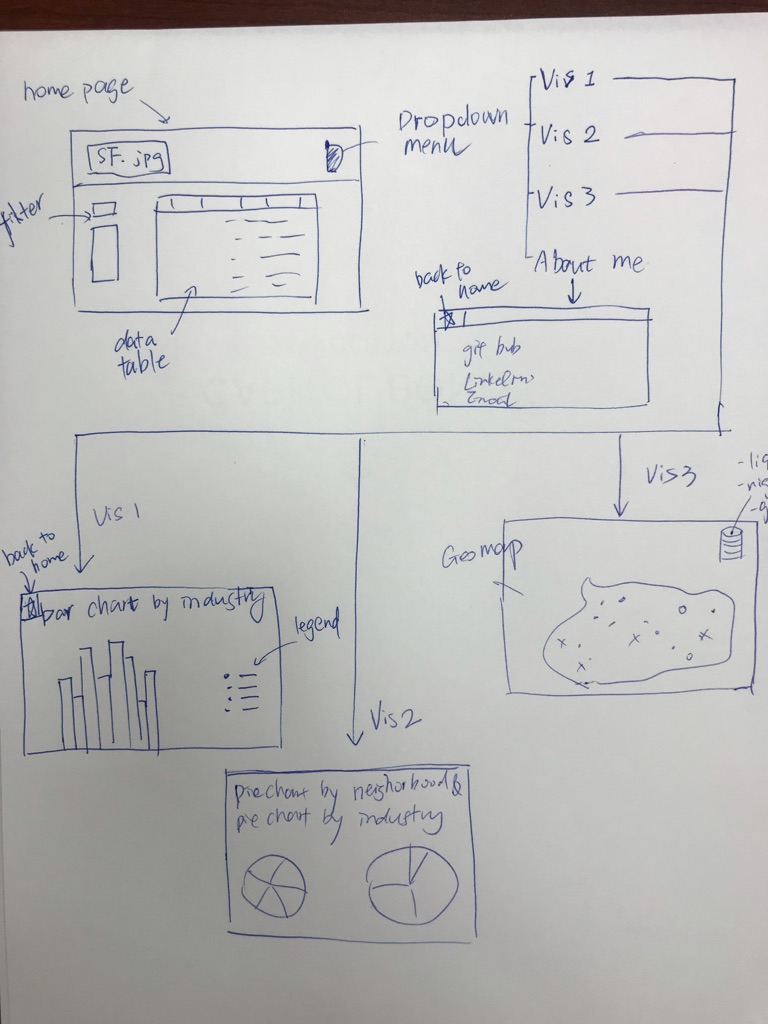 home page
SF.jpg
Dropdown
menu
filter
data
table
Vis 1
Vis 2
Vis 3
About me
back to
home
git hub
Vis 1
back to
home
bar chart by industry
legend
Vis2
pie chart by neighorbood &
pie chart by industry
Vis3
Geomap